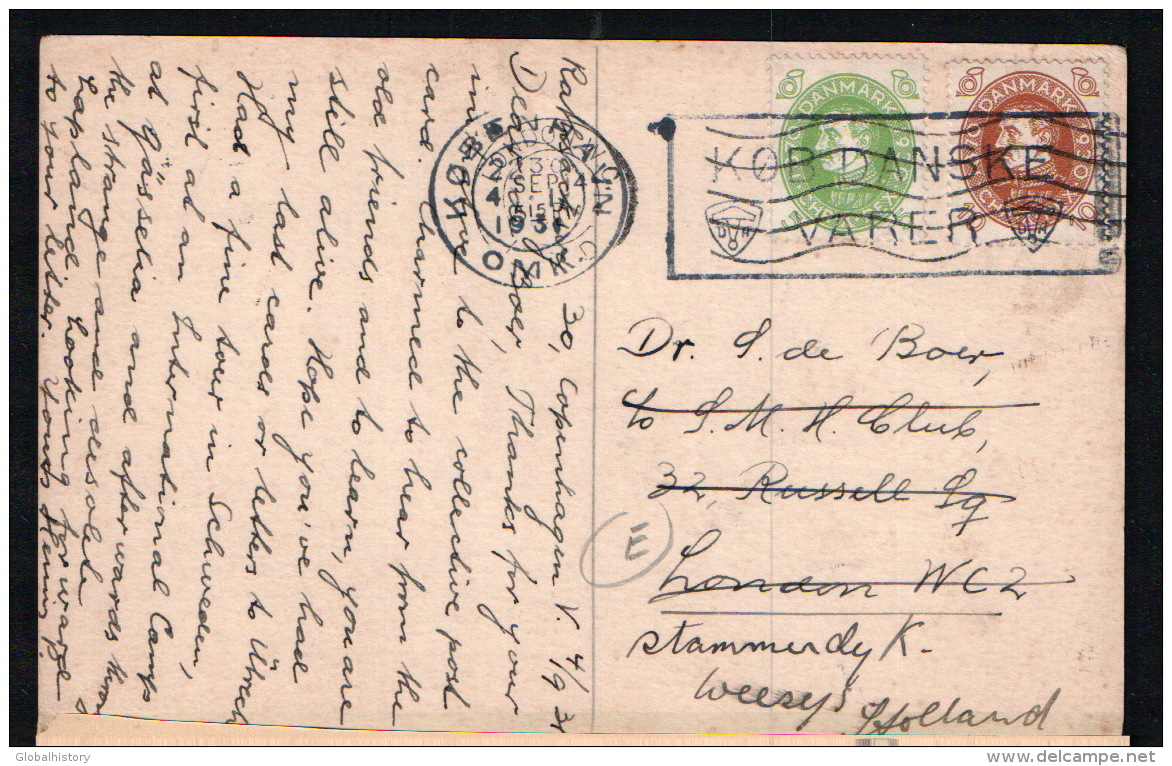 30, Copenhagen V. 4/9 31
Dear Boer, Thanks for your
in to the collective post
card. Charmed to hear from the
old friends and to learn, you are
still alive. Hope you've had
my last cards or letters to
Had a fine tour in Schweden,
first at an International Camp
at Gässelia and afterwards thro
the strange and desolate
Laplands. Looking forward
to your letter. Yours Henning
KØBENHAVN
OMK.
1931
SEP
DANMARK
1870 1930
DANMARK
1870 1930
10
10
KØB DANSKE
VARER
Dr. S. de Boer,
to S. M. H. Club,
32, Russell Sq
London WC2
E
Stammerdyk.
Weesp
Holland
Globalhistory
www.delcampe.net